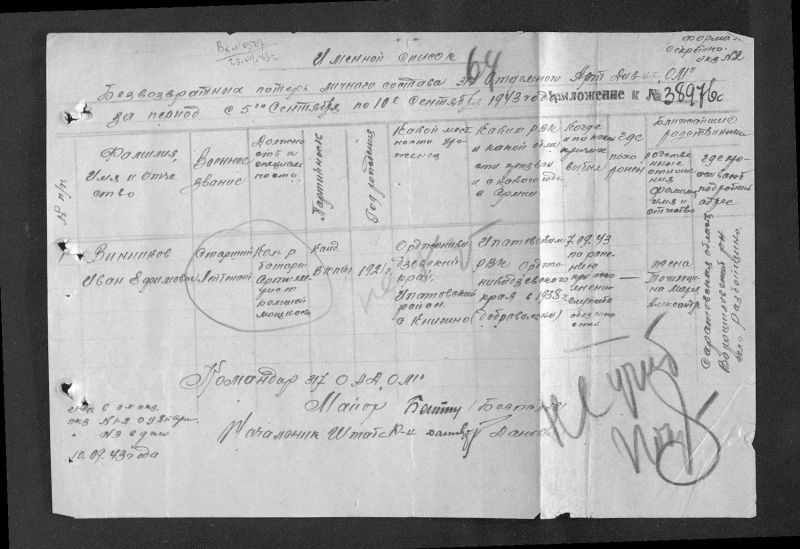 Вх № 0507
23.09.43г
форма
экз №2
Именной список
64
Безвозвратных потерь личного состава 317 Отдельного Арт Див-на „ОМ"
за период с 5го Сентября по 10е Сентября 1943 года
Приложение к № 38976с
№ п/п
Фамилия,
Имя и отче
ство
Военное
звание
Должно
сть и
специаль
ность
Партийность
Год рождения
Какой мест
ности уро
женец
Каким РВК
и какой обла
сти призван
и с какого года
в Армии
Когда
и по какой
причине
выбыл
Где
похо
ронен
Ближайшие
родственники
родстве
нные
отноше
ния
фамилия
имя и
отчество
где про
живают
подробный
адрес
1
Винников
Иван Ефимович
Старший
Лейтенант
Ком-р
батареи
Артилле
рист
большой
мощности
канд
ВКП(б)
1921г
Орджоники
дзевский
край
Ипатовский
район
с Кугино
Ипатовским
РВК Ордж
никидзевского
края в 1938г
(добровольно)
7.09.43
по ране
нию
при испо
лнении
служебн
обязанно
стей
—
жена
Мария
Александр
Саратовская область
Ворошиловский рн.
село Разбойщино.
Командир 317 ОАД „ОМ"
Майор
Начальник Штаба К-н
Отп. в 2х экз.
экз №1-
" №2 в дело
10.09.43 года
не учтб